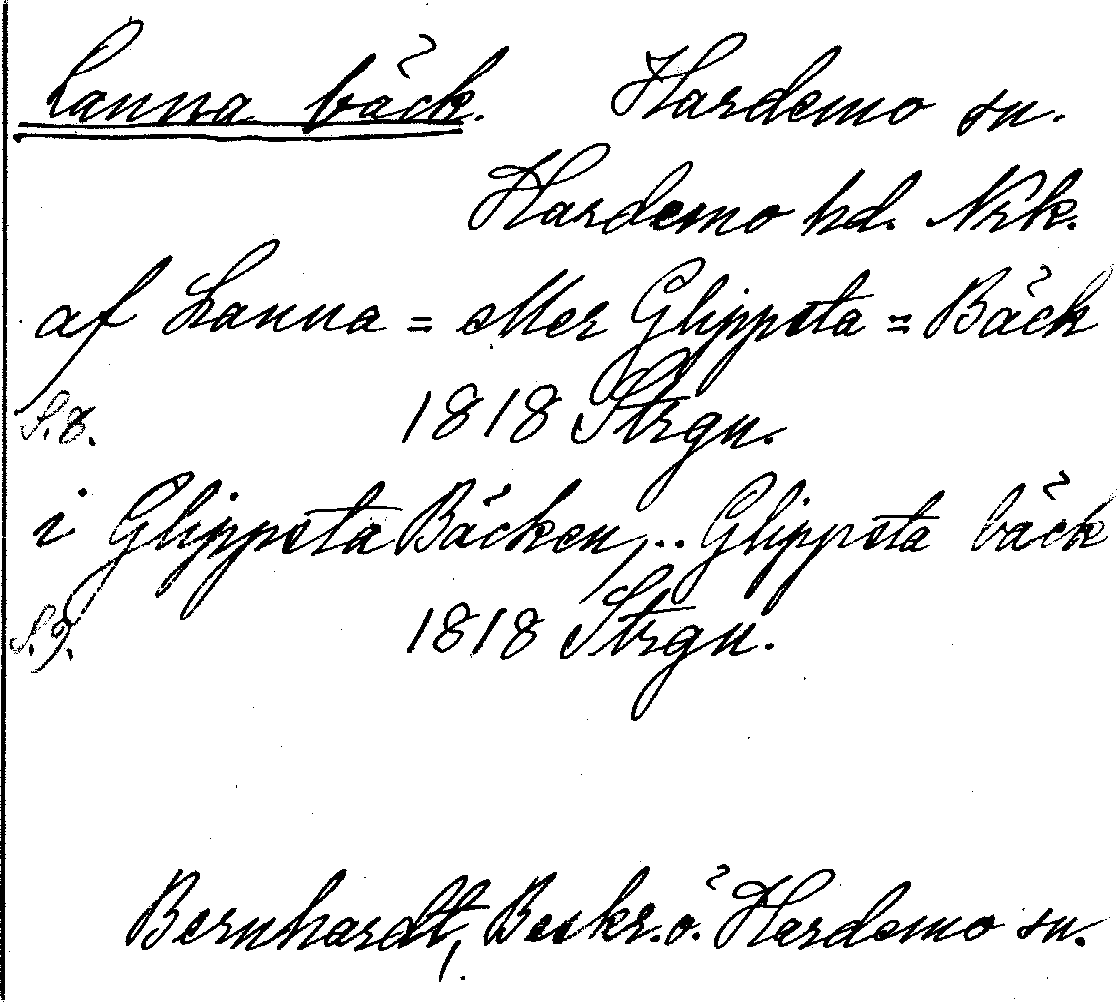 Lanna bäck. Hardemo sn.
Hardemo hd. Nrk.
af Lanna = eller Glippsta = Bäck
S.8. 1818 Strgn.
i Glippsta Bäcken, .. Glippsta bäck
S.9. 1818 Strgn.
Bernhardt, Beskr. ö. Hardemo sn.